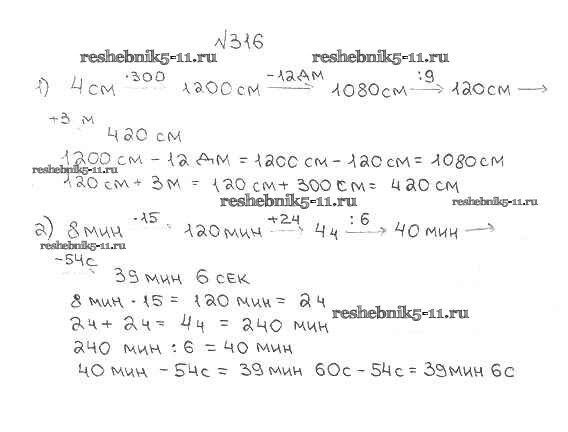 №316
reshebnik5-11.ru reshebnik5-11.ru
1) 4 см ·300 → 1200 см -12дм → 1080 см :9 → 120 см →
+3 м
420 см
1200 см - 12 дм = 1200 см - 120 см = 1080 см
reshebnik5-11.ru
120 см + 3 м = 120 см + 300 см = 420 см
reshebnik5-11.ru reshebnik5-11.ru
2) 8 мин ·15 → 120 мин +2ч → 4ч :6 → 40 мин →
reshebnik5-11.ru
-54с
39 мин 6 сек
8 мин · 15 = 120 мин = 2ч
reshebnik5-11.ru
2ч + 2ч = 4ч = 240 мин
240 мин : 6 = 40 мин
40 мин - 54с = 39 мин 60с - 54с = 39 мин 6с